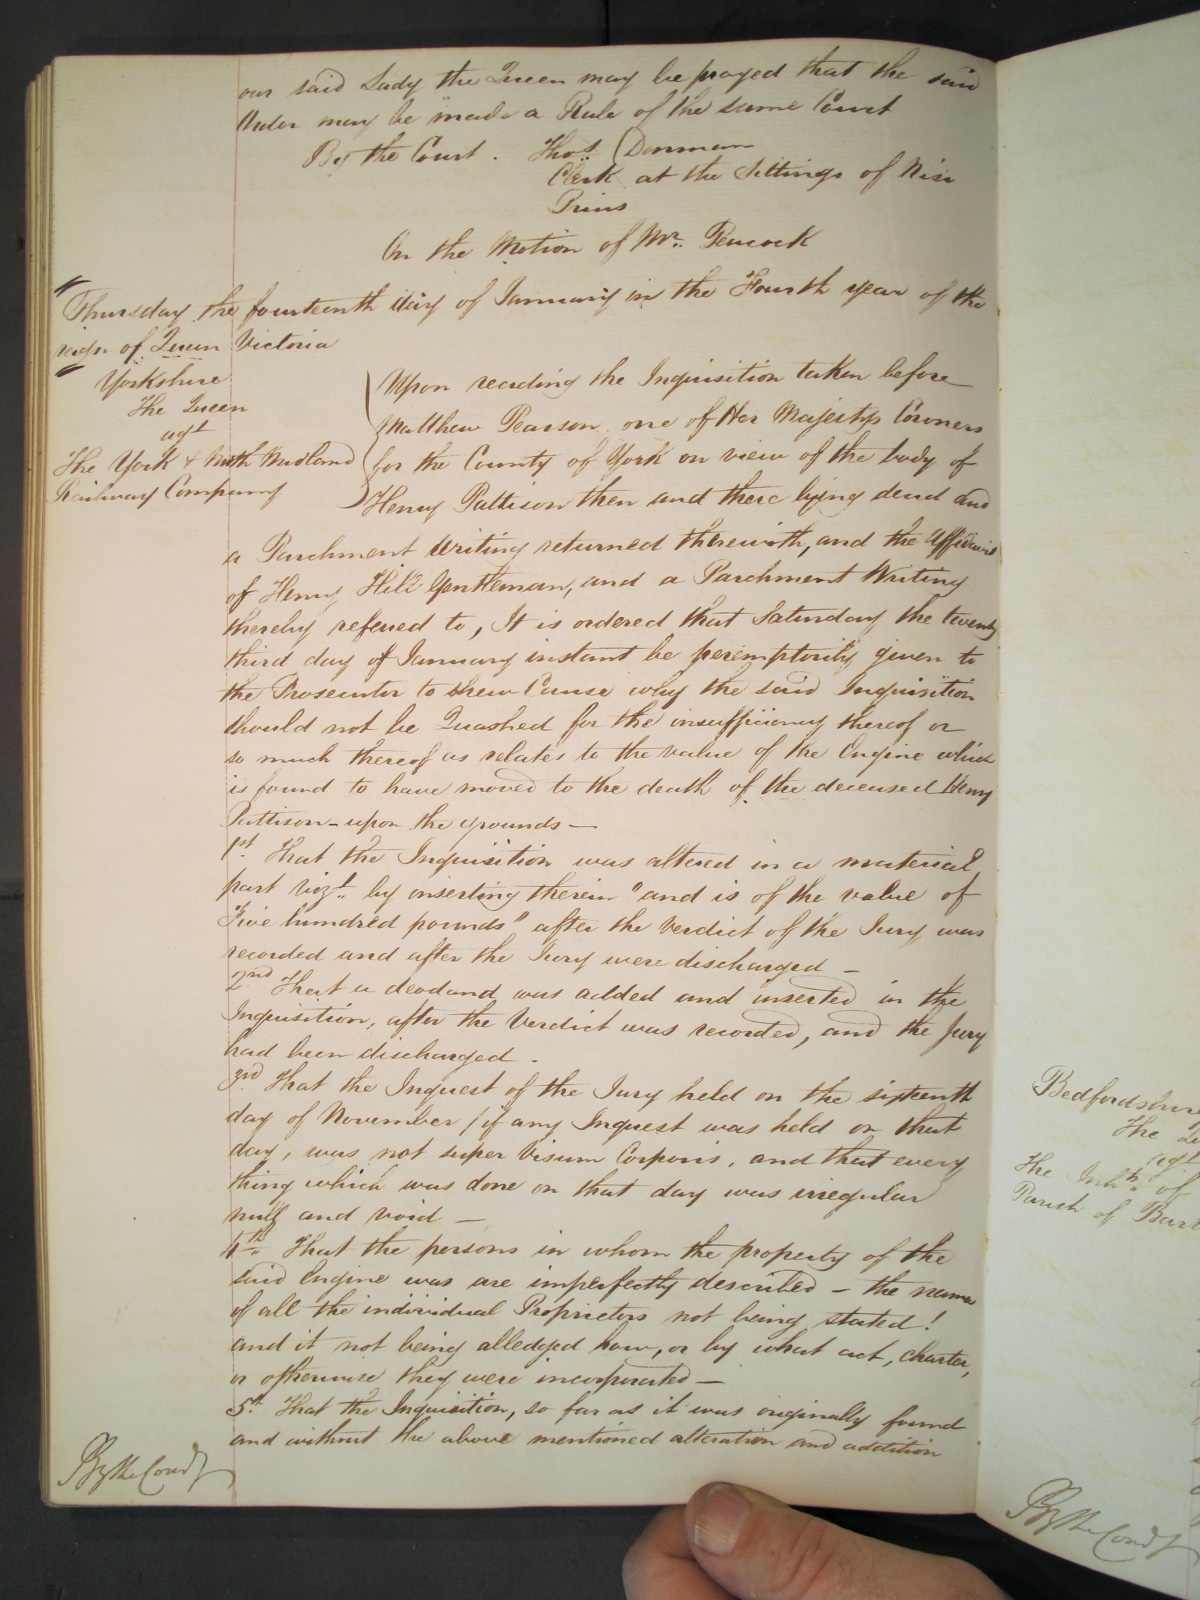 our said Lady the Queen may be prayed that the said
Order may be made a Rule of the same Court
By the Court. Thos. Denman
Clerk at the Sittings of Nisi
Prius
On the Motion of Mr. Peacock
Thursday the fourteenth day of January in the Fourth year of the
reign of Queen Victoria
Yorkshire
The Queen
agt
The York & North Midland
Railway Company
Upon reading the Inquisition taken before
Matthew Pearson one of Her Majestys Coroners
for the County of York on view of the body of
Henry Pattison then and there lying dead and
a Parchment Writing returned therewith, and the Affidavit
of Henry Hill Gentleman, and a Parchment Writing
thereby referred to, It is ordered that Saturday the twenty
third day of January instant be peremptorily given to
the Prosecutor to shew Cause why the said Inquisition
should not be Quashed for the insufficiency thereof or
so much thereof as relates to the value of the Engine which
is found to have moved to the death of the deceased Henry
Pattison - upon the grounds —
1st. That the Inquisition was altered in a material
part vizt. by inserting therein "and is of the value of
Five hundred pounds" after the verdict of the Jury was
recorded and after the Jury were discharged —
2nd That a deodand was added and inserted in the
Inquisition, after the Verdict was recorded, and the Jury
had been discharged.
3rd. That the Inquest of the Jury held on the sixteenth
day of November (if any Inquest was held on that
day, was not super Visum Corporis, and that every
thing which was done on that day was irregular
null and void —
4th. That the persons in whom the property of the
said Engine was are imperfectly described - the names
of all the individual Proprietors not being stated!
and it not being alledged how, or by what act, charter,
or otherwise they were incorporated —
5th. That the Inquisition, so far as it was originally found
and without the above mentioned alteration and addition
By the Court
Bedfordshire
The
agt
The Inhts. of
Parish of
By the Court